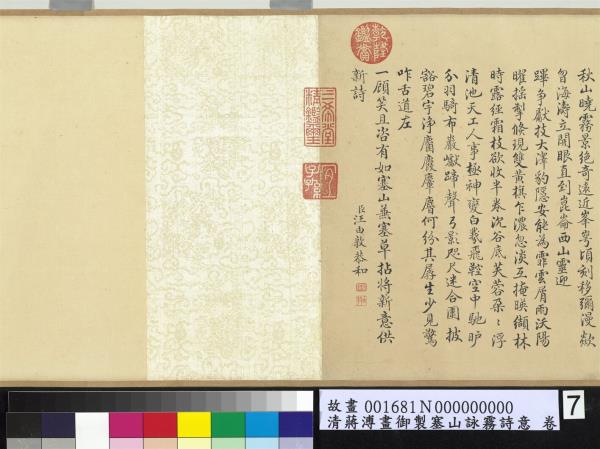 秋山曉霧景絶奇遠近峯岑頃刻移彌漫歘
曾海濤立開眼直到崑崙西山靈迎
蹕争獻技大澤豹隱安能為霏雲屑雨沃陽
曜揺掣倐現雙黄棋乍濃忽淡互掩暎纈林
時露經霜枝欲收半卷沉谷底芙蓉朶〻浮
清池天工人事極神變白羲飛鞚空中馳
分羽騎布巖嶽蹄聲弓影咫尺迷合圍披
豁碧宇浄麕麚麋麏何紛其孱生少見驚
咋古道左
一顧笑且咨有如塞山兼塞草拈將新意供
新詩
臣汪由敦恭和
乾隆鑑賞
三希堂精鑑璽
宜子孫
故畫 001681N000000000
清蔣溥畫御製塞山詠霧詩意 卷
7